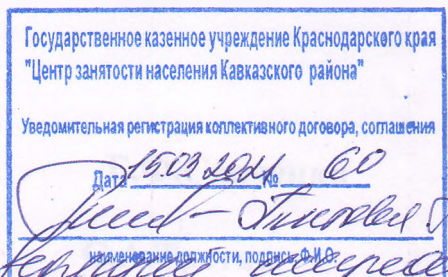 Государственное казенное учреждение Краснодарского края
"Центр занятости населения Кавказского района"
Уведомительная регистрация коллективного договора, соглашения
Дата 15.03.2021 № 60
наименование должности, подпись, Ф.И.О.